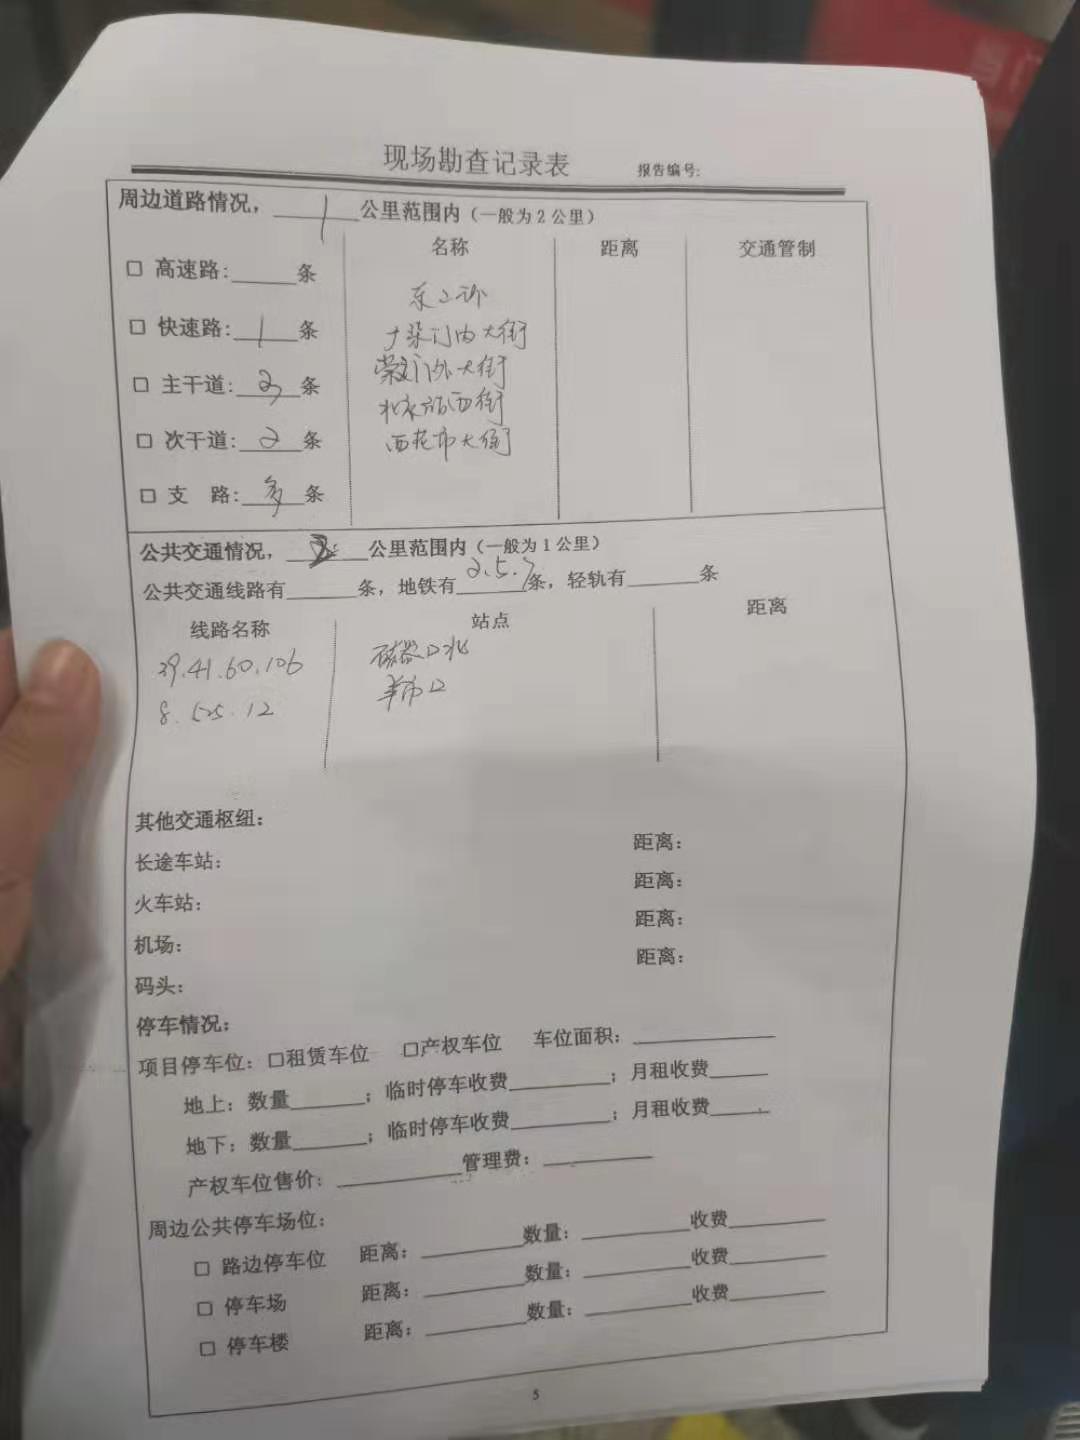 现场勘查记录表 报告编号:
周边道路情况，1公里范围内（一般为2公里）
名称 距离 交通管制
□ 高速路:______条
东二环
□ 快速路:1条
广渠门内大街
崇文门外大街
□ 主干道:2条
北京站西街
□ 次干道:2条
西花市大街
□ 支 路:多条
公共交通情况，公里范围内（一般为1公里）
公共交通线路有______条，地铁有2.5.7条，轻轨有______条
线路名称 站点 距离
39.41.60.106 磁器口北
8.525.12 羊市口
其他交通枢纽:
长途车站: 距离:
火车站: 距离:
机场: 距离:
码头: 距离:
停车情况:
项目停车位: □租赁车位 □产权车位 车位面积:______
地上: 数量______; 临时停车收费______; 月租收费______
地下: 数量______; 临时停车收费______; 月租收费______
产权车位售价:______管理费:______
周边公共停车场位:
□ 路边停车位 距离:______数量:______收费______
□ 停车场 距离:______数量:______收费______
□ 停车楼 距离:______数量:______收费______
5